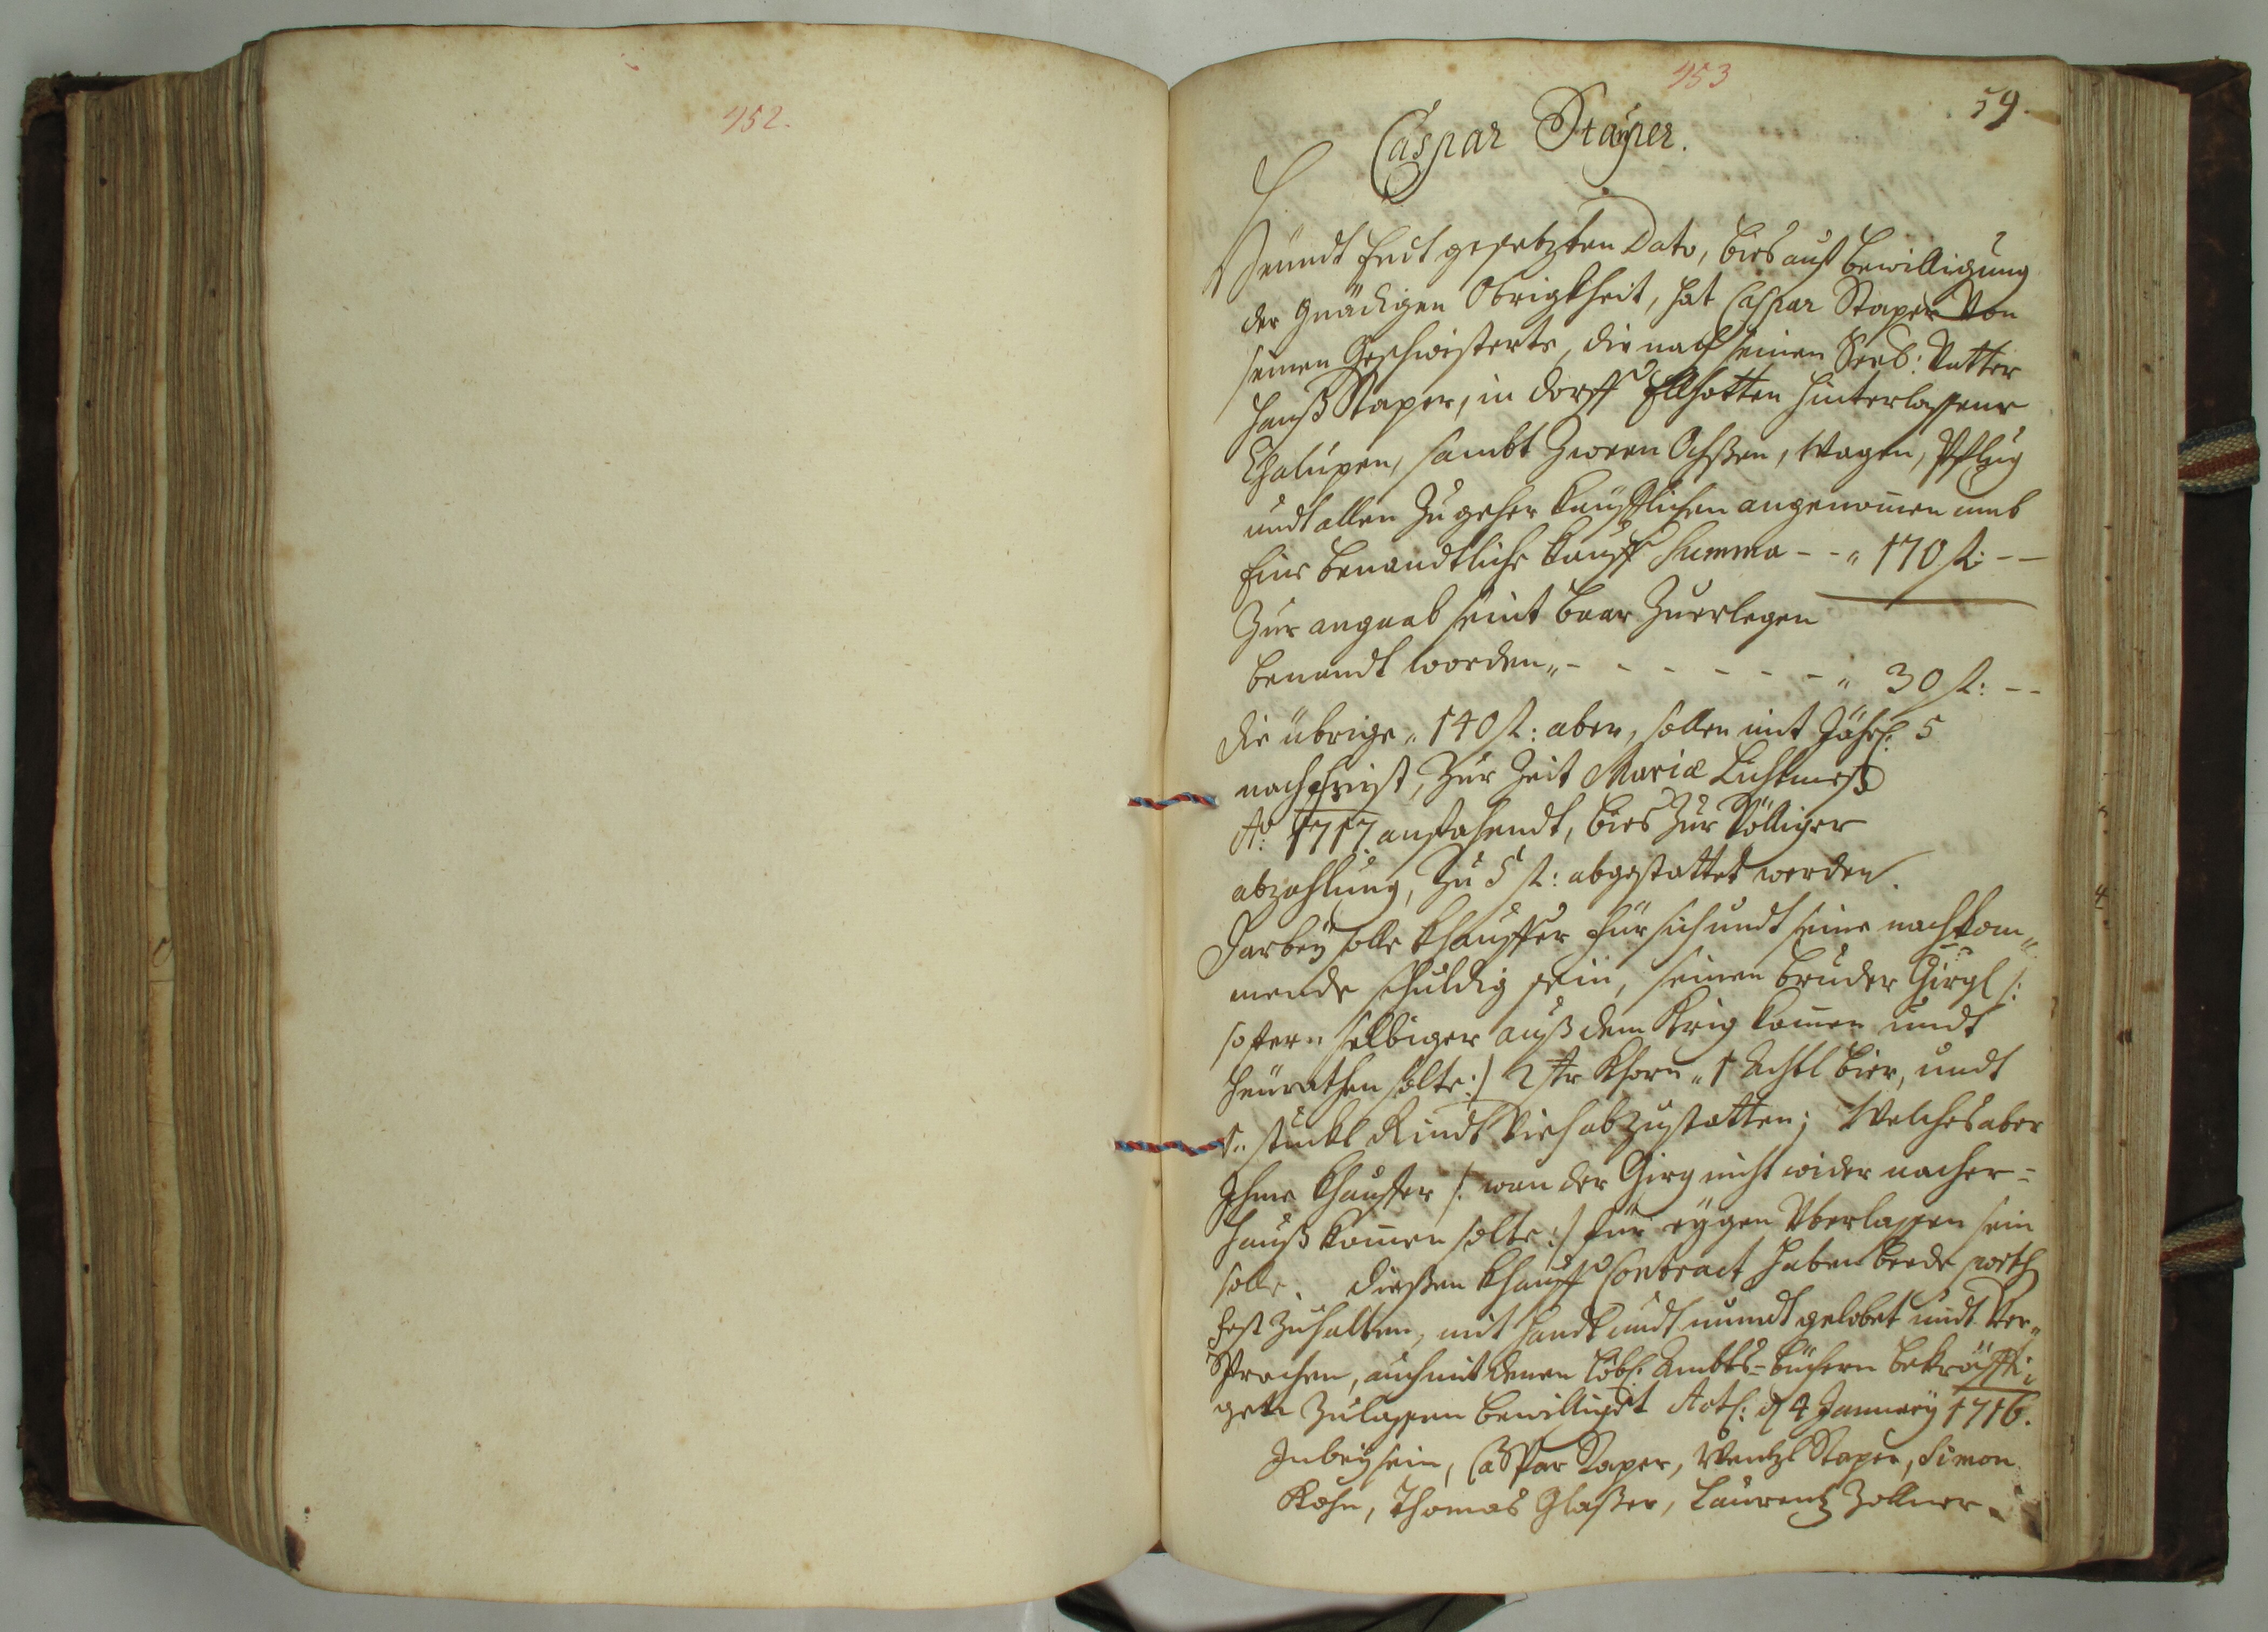 452.
453
59.
Caspar Staper.
Heündt Endt gesetzten Dato, bies auf bewilligung
der Gnädigen Obrigkheit, hat Caspar Staper Von
seinen Geschwisterte, die nach seinen Seel: Vatter
Hanß Staper, in dorff Ellhotten hinterlassene
Chalupen, sambt Zween Ochßen, Wagen, Pflug
undt allen Zugeher kaüfflichen angenom̄en umb
Eine benandtliche kauff Summa - - " 170 fl: - -
Zur angaab seint baar Zuerlegen
benandt worden " - - - - - - " 30 fl: - -
die übrige " 140 fl: aber, sollen mit Jährl: 5
nachfrist, Zur Zeit Mariæ Liechtmeß
Aō: 1717 anfahendt, bies Zur Völliger
abzahlung, Zu 5 fl: abgestattet werden.
Darbeÿ solle khauffer für sich undt seine nachkom"
mende schuldig sein, seinen bruder Girgl /:
sofern selbiger auß dem Krig kom̄en undt
heürathen solte :/ 2 str Khorn " 1 Achtl bier, undt
1 " stückl Rindt Vieh abzustatten; Welches aber
Ihme khauffer /: wan der Girg nicht wider nacher=
hauß kom̄en solte :/ für eÿgen Uberlassen sein
solle. dießen khauff Contract haben beede parth
fest Zuhalten, mit handt undt mundt gelobet undt Ver"
sprochen, auch mit denen löbl: Ambts=büchern bekräffti=
gen Zulassen bewilliget Act: d 4 Januarÿ 1716.
In beÿsein, Caspar Staper, Wentzl Staper, Simon
Kohn, Thomas Glaßer, Laurentz Zollner.